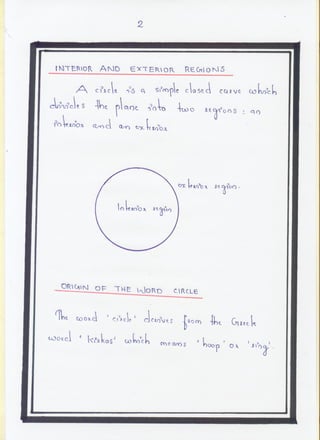 2
INTERIOR AND EXTERIOR REGIONS
A circle is a simple closed curve which
divides the plane into two regions : an
interior and an exterior
exterior region.
Interior region
ORIGIN OF THE WORD CIRCLE
The word 'circle' derives from the Greek
word 'kirkos' which means 'hoop' or 'ring'.